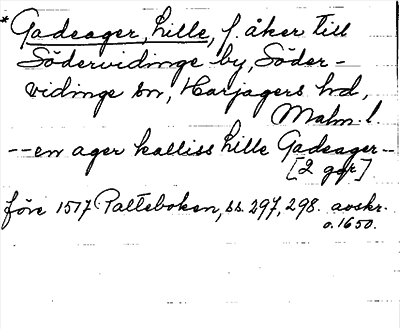 * Gadeager, lille, f. åker till
Södervidinge by, Söder-
vidinge sn, Harjagers hd,
Malm. l.
-- en ager kalliss lille Gadeager --
[2 ggr]
före 1517 Palteboken, ss. 297, 298. avskr.
o. 1650.